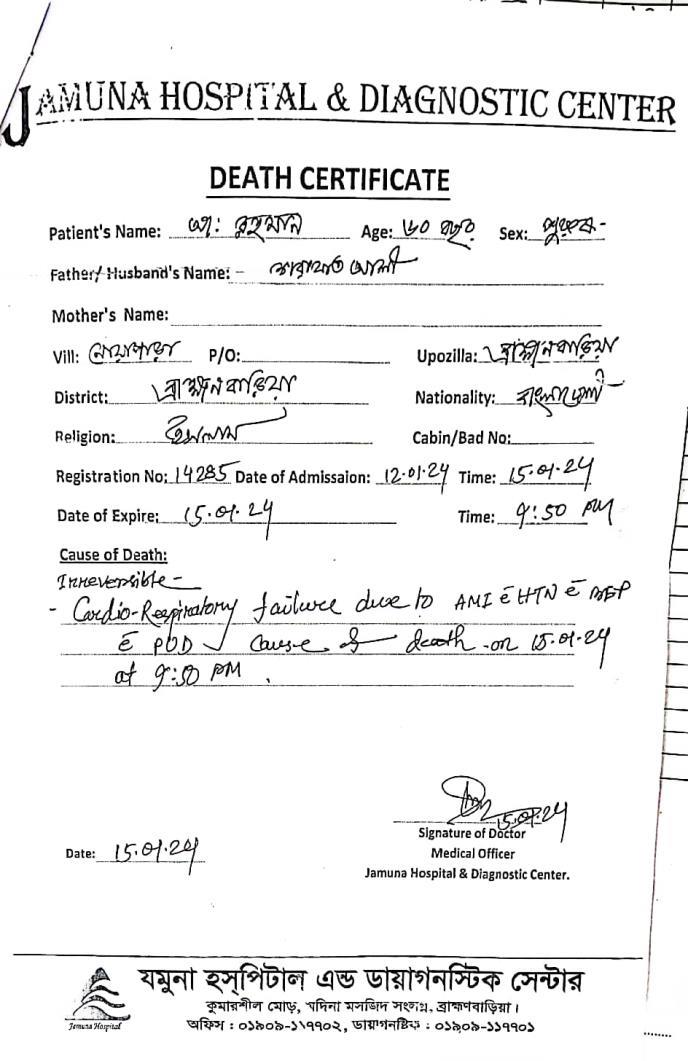 JAMUNA HOSPITAL & DIAGNOSTIC CENTER
DEATH CERTIFICATE
Patient's Name: আ: রহমান Age: ৬০ বছর Sex: পুরুষ-
Father/ Husband's Name: - আলী
Mother's Name:
Vill: P/O: Upozilla: ব্রাহ্মনবাড়িয়া
District: ব্রাহ্মনবাড়িয়া Nationality: বাংলাদেশী
Religion: ইসলাম Cabin/Bad No:
Registration No: 14285 Date of Admissaion: 12.01.24 Time: 15.01.24
Date of Expire: 15.01.24 Time: 9:50 PM
Cause of Death:
Irreversible -
- Cardio-Respiratory failure due to AMI c̄ HTN c̄
c̄ Cause of death on 15.01.24
at 9:50 PM.
15.01.24
Signature of Doctor
Date: 15.01.24 Medical Officer
Jamuna Hospital & Diagnostic Center.
Jamuna Hospital
যমুনা হস্‌পিটাল এন্ড ডায়াগনস্টিক সেন্টার
কুমারশীল মোড়, মদিনা মসজিদ সংলগ্ন, ব্রাহ্মণবাড়িয়া।
অফিস : ০১৯০৯-১১৭৭০২, ডায়াগনষ্টিক : ০১৯০৯-১১৭৭০১